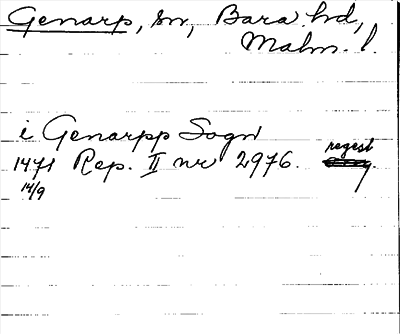 Genarp, sn, Bara hd,
Malm. l.
i Genarpp Sogn
1471 Rep. II nr 2976. regest
14/9